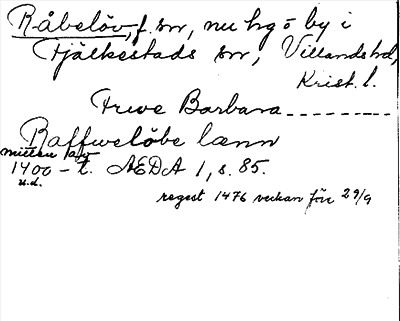 Råbelöv, f. sn, nu hg o by i
Fjälkestads sn, Villands hd,
Krist. l.
Frwe Barbara ---------
Raffwelöbe lænn
mitten av
1400-t. ÆDA 1, s. 85.
u.d.
regest 1476 veckan före 29/9